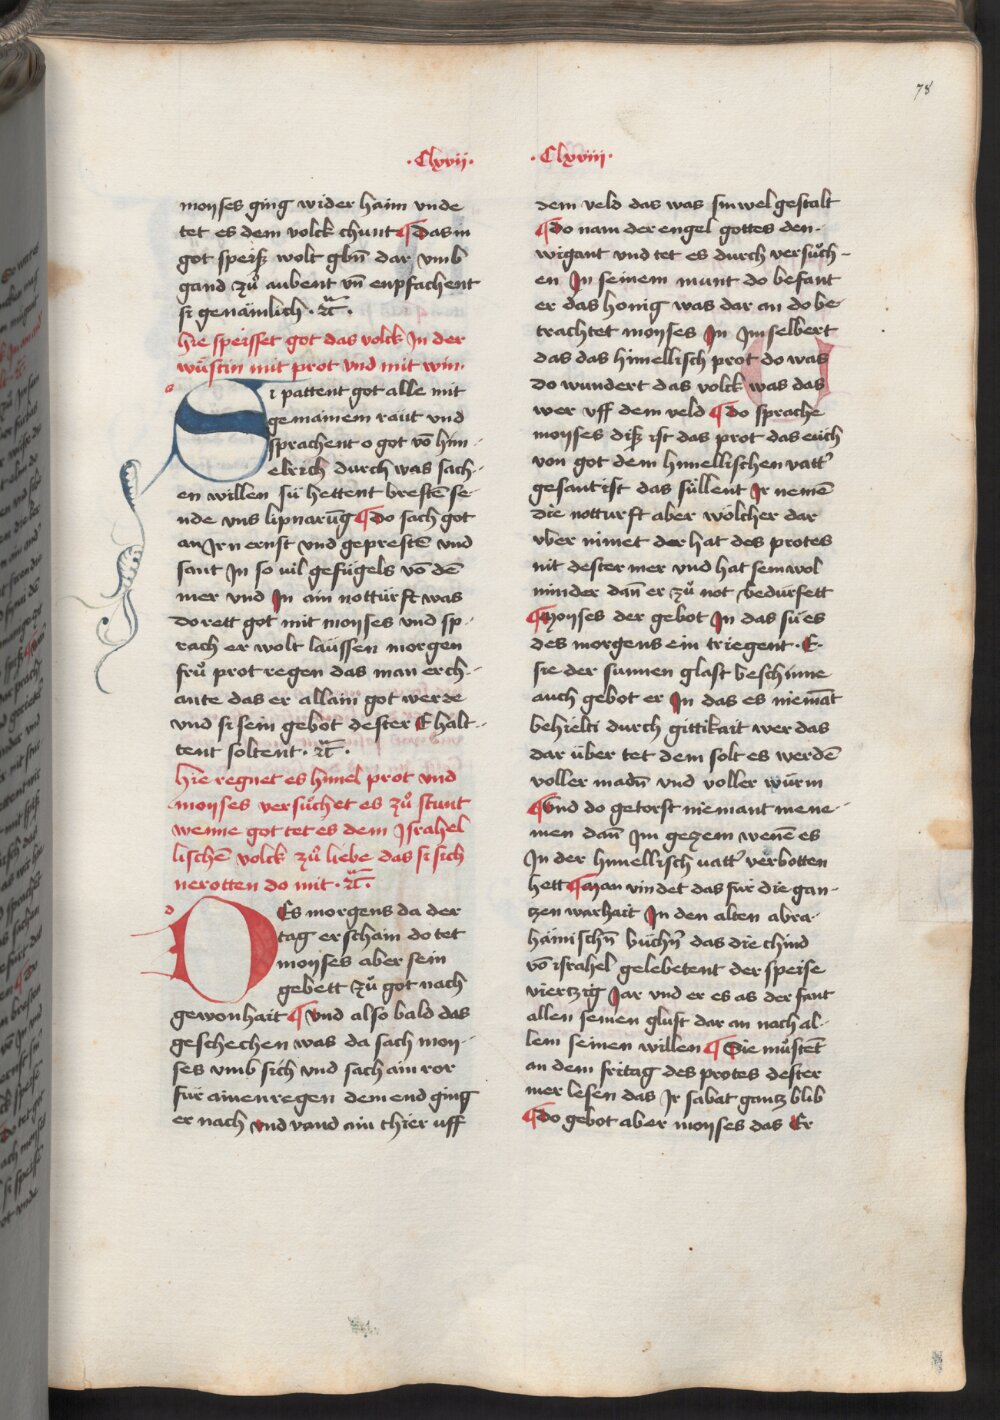 78
·Clxvii·
monses ging wider haim vnde
tet es dem volck chunt ¶ Das in
got speiß wolt gbn̄ dar vmb
gand zů aubent vn̄ enpfachent
si genämlich · ꝛc̄ ·
hie speisset got das volck Jn der
wüstin mit prot vnd mit win·
Si pattent got alle mit
gemainem raut vnd
sprachent o got vō him-
elrich durch was sach-
en willen sü hettent brestē se-
nde vns lipnarūg ¶ Do sach got
an Jrn ernst vnd geprestē vnd
sant Jn so vil gefügels vō dē
mer vnd Jn ain notturft was
do rett got mit monses vnd sp-
rach er wolt läussen morgen
frů prot regen das man erch-
ante das er allain got werde
vnd si sein gebot dester Ehalt-
tent soltent · ꝛc̄ ·
hie regnet es himel prot vnd
monses versůchet es zů stunt
wenne got tet es dem Jsrahel
lischē volck zů liebe das si sich
nerotten do mit · ꝛc̄ ·
DEs morgens da der
tag erschain do tet
monses aber sein
gebett zů got nach
gewonhait ¶ Vnd also bald das
geschechen was da sach mon-
ses vmb sich vnd sach ain ror
für ainen regen dem end ging
er nach vnd vand ain thier uff
·Clxviii·
dem veld das was sinwel gestalt
¶ Do nam der engel gottes den-
wigant vnd tet es durch versůch-
en Jn seinem munt do befant
er das honig was dar an do be-
trachtet monses Jn Jm selbert
das das himellisch prot do was
do wundert das volck was das
wer vff dem veld ¶ Do sprache
monses diß ist das prot das euch
von got dem himellischen vatt'
gesant ist das süllent Jr nemē
die notturft aber wölcher dar
vber nimet der hat des protes
nit dester mer vnd hat sein wol
minder dan̄ er zů not bedürfett
¶ Monses der gebot Jn das sü es
des morgens ein triegent · E·
sie der sunnen glast beschinne
auch gebot er Jn das es niemāt
behielti durch gittikait wer das
dar über tet dem solt es werdē
voller madn̄ vnd voller würm
¶ Vnd do getorst niemant mene-
men dan̄ Jm gezem wenē es
Jn der himellisch vatt' verbotten
hett ¶ Man vindet das für die gan-
tzen warhait Jn den alten abra-
hämischn̄ büchn̄ das die chind
vō israhel gelebetent der speise
viertzig Jar vnd er es as der fant
allen seinen glust dar an nach al-
lem seinen willen ¶ Sie můstent
an dem fritag des protes dester
mer lesen das Jr sabat gantz blib
¶ Do gebot aber monses das Er